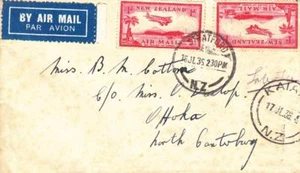 BY AIR MAIL
PAR AVION
NEW ZEALAND
AIR MAIL
NEW ZEALAND
AIR MAIL
18 JL 35 2.30 PM
N.Z.
Miss B. M. Cotton
C/O. Miss
Ohoka
North Canterbury
KAIA
17 JL 35
N.Z.